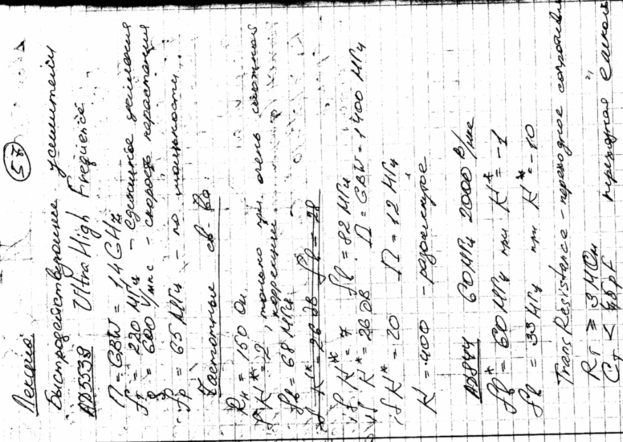 57
Лекция
Быстродействующие усилители
AD5539 Ultra High Frequence
П = GBW = 1,4 GHz
f = 220 МГц - единичное усиления
= 600 V/мкс - скорость нарастания
fp = 65 МГц - по мощности
Частотные св-ва
Rн = 150 Ом
K* = 2, только при очень сложной
коррекции
fв = 68 МГц
K* = 7 fв = 82 МГц
K* = 26дВ П = GBW = 1400 МГц
K* = 20 П = 12 МГц
K = 400 - разомкнутое
AD844 60 МГц 2000 В/мкс
fв* = 60 МГц при K* = -1
fв = 33 МГц при K* = -10
Trans Resistance - переходное сопротивл
Rт ≥ 3 МОм
Cт < 4,5 pF переходная емкость